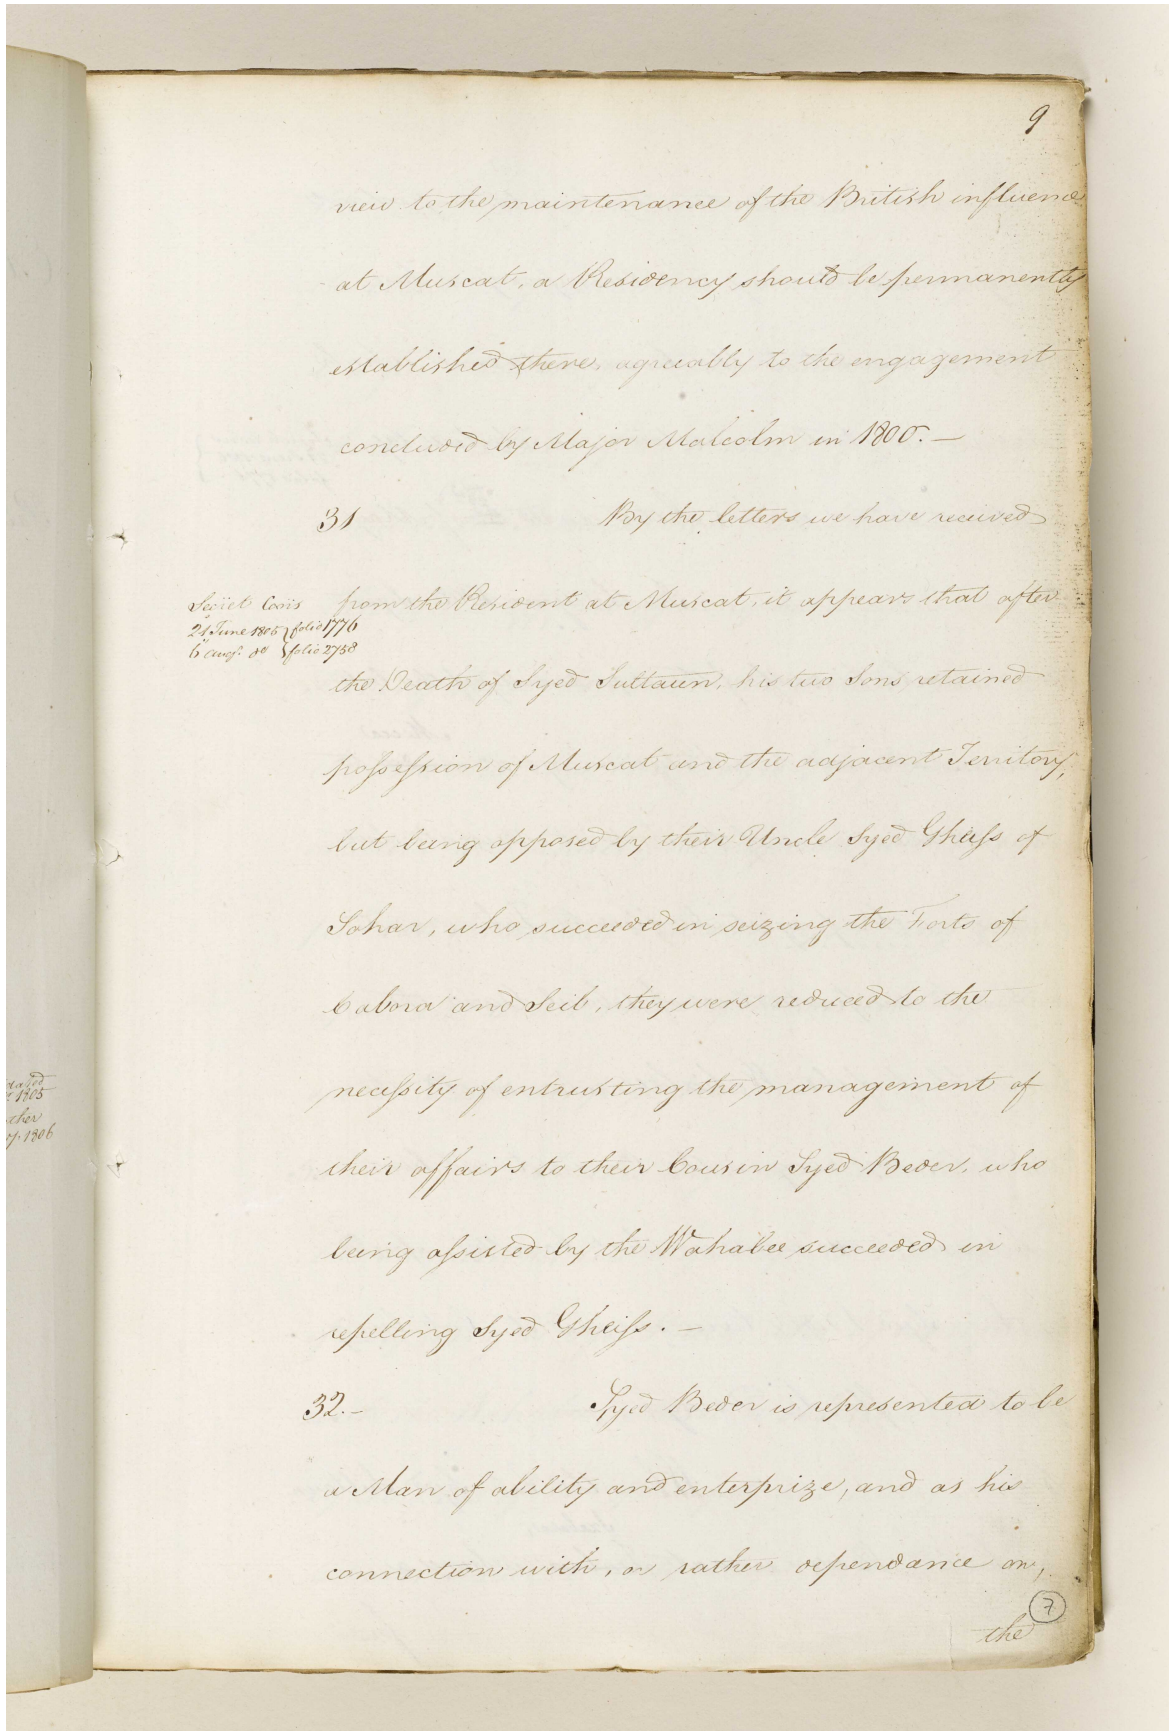 9
view to the maintenance of the British influence
at Muscat, a Residency should be permanently
established there, agreeably to the engagement
concluded by Major Malcolm in 1800.—
31 By the letters we have received
Secret Cons
21 June 1805 } folio 1776
6 Augt. do } folio 2758
from the Resident at Muscat, it appears that after
the Death of Syed Sultaun, his two Sons retained
possession of Muscat and the adjacent Territory,
but being opposed by their Uncle Syed Gheiss of
Sohar, who succeeded in seizing the Forts of
Cabora and Seib, they were reduced to the
necessity of entrusting the management of
their affairs to their Cousin Syed Beder, who
being assisted by the Wahabee succeeded in
repelling Syed Gheiss.—
32.— Syed Beder is represented to be
a Man of ability and enterprize, and as his
connection with, or rather dependance on,
7
the
1805
1806